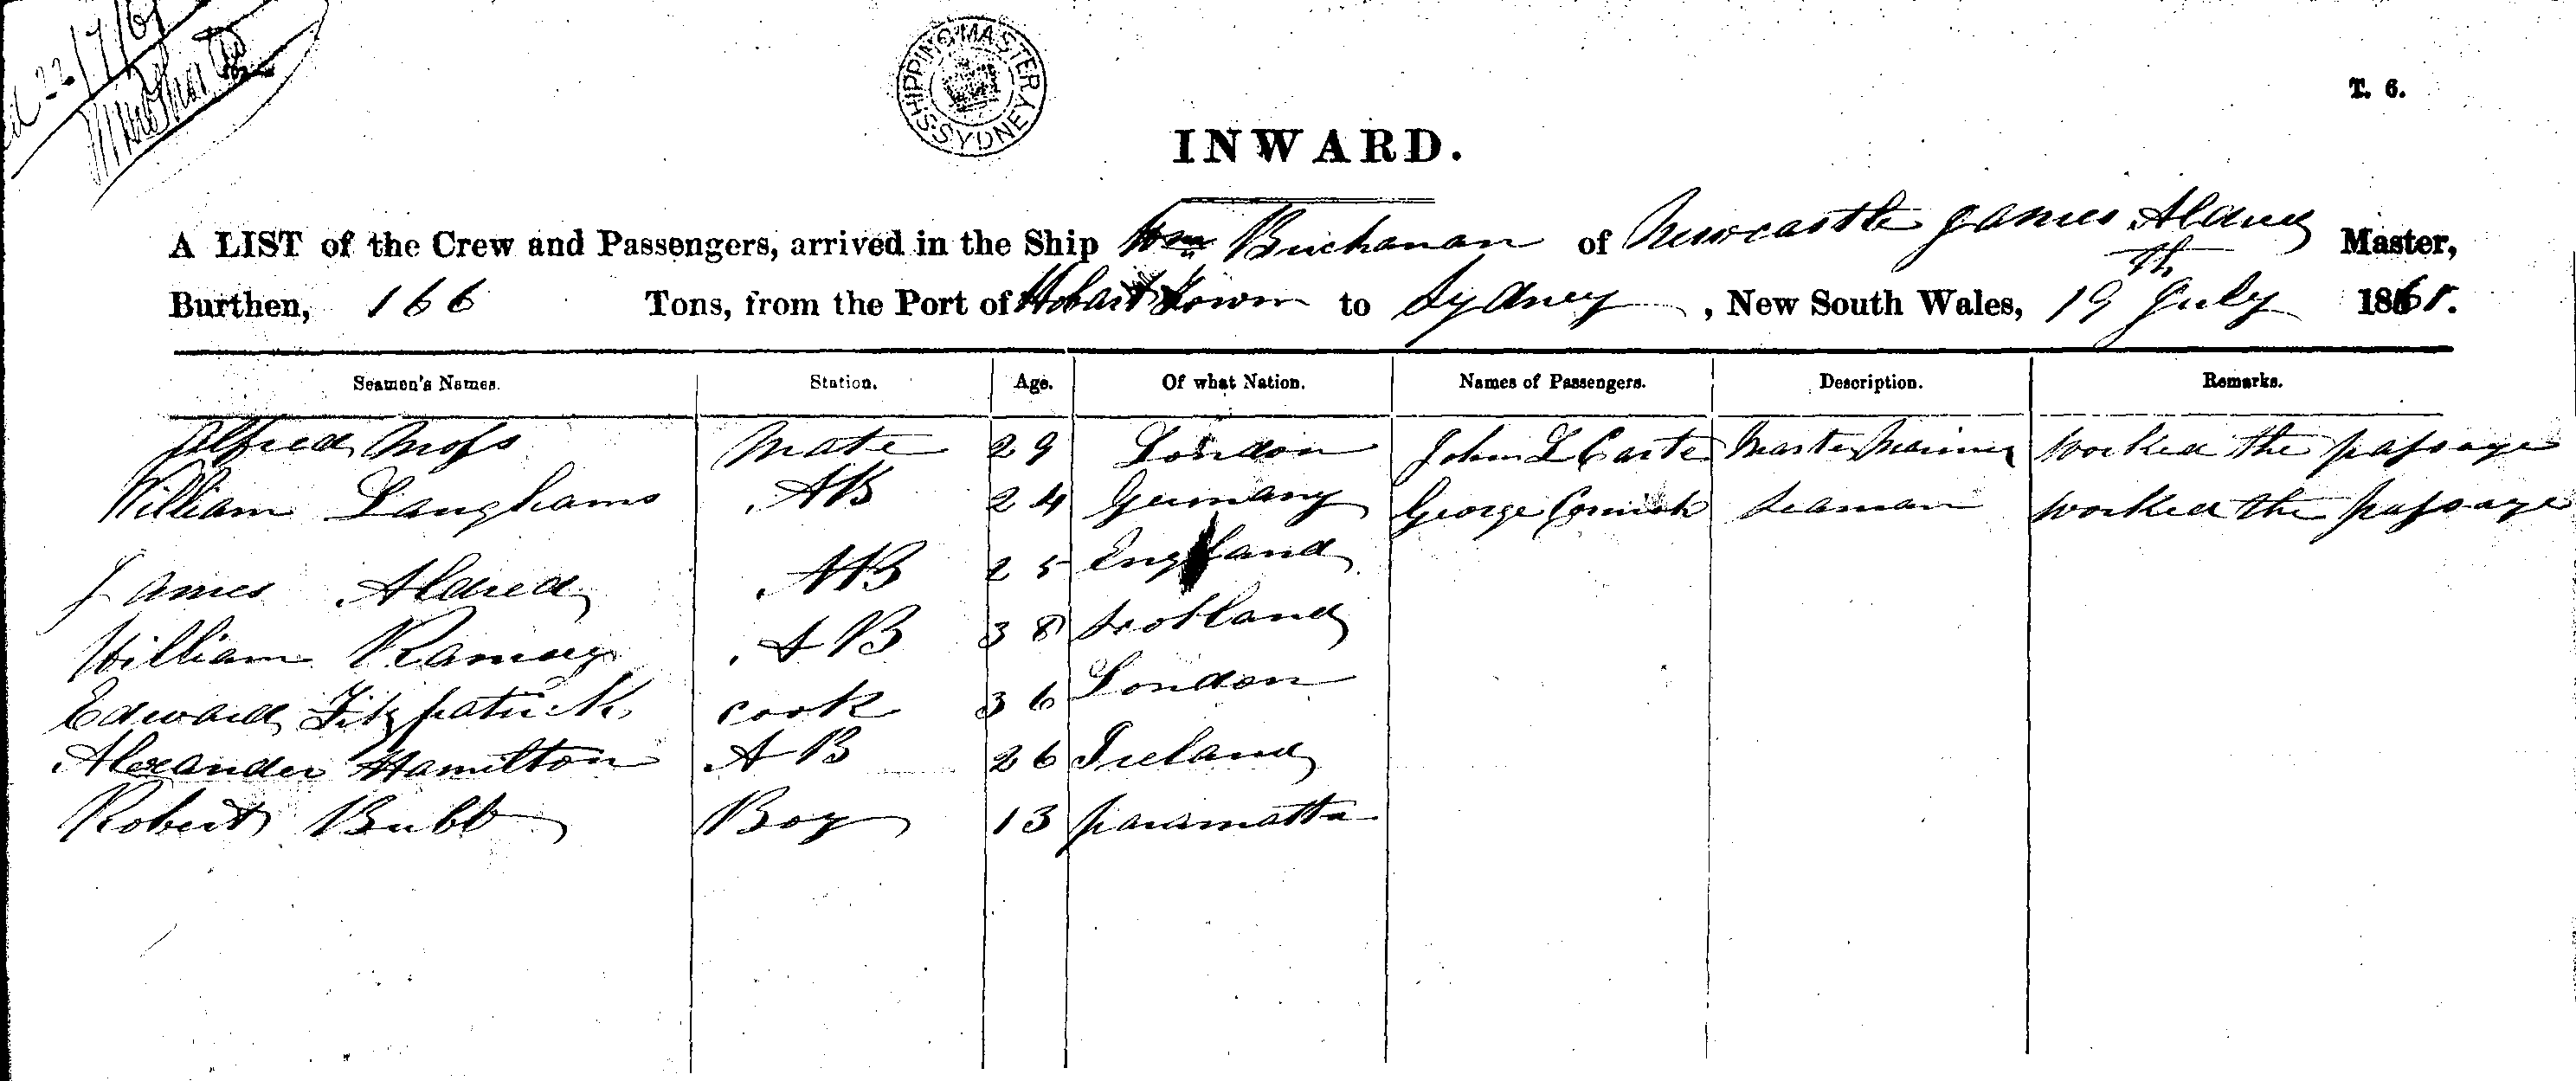 22/7/61
SHIPPING MASTER
SYDNEY
T. 6.
INWARD.
A LIST of the Crew and Passengers, arrived in the Ship Wm Buchanan of Newcastle James Aldred Master,
Burthen, 166 Tons, from the Port of Hobart Town to Sydney, New South Wales, 19th July 1861.
Seamen's Names. Station. Age. Of what Nation. Names of Passengers. Description. Remarks.
Alfred Moss Mate 29 London John L Carte Master Mariner Worked the passage
William Langhams AB 24 Germany George Cornish Seaman Worked the passage
James Aldred AB 25 England
William Ramsey AB 38 Scotland
Edward Fitzpatrick cook 36 London
Alexander Hamilton AB 26 Ireland
Robert Bubb Boy 13 paramatta